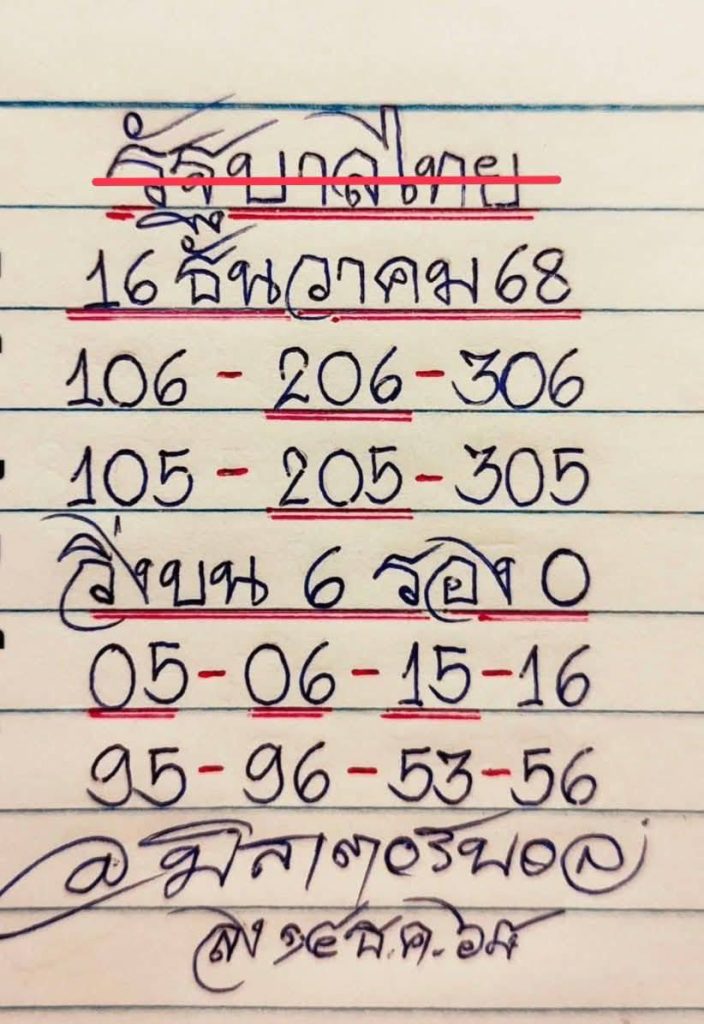 รัฐบาลไทย
16 ธันวาคม 68
106 - 206 - 306
105 - 205 - 305
วิ่งบน 6 รอง 0
05 - 06 - 15 - 16
95 - 96 - 53 - 56
ลง ๑๔ ธ.ค. ๖๘